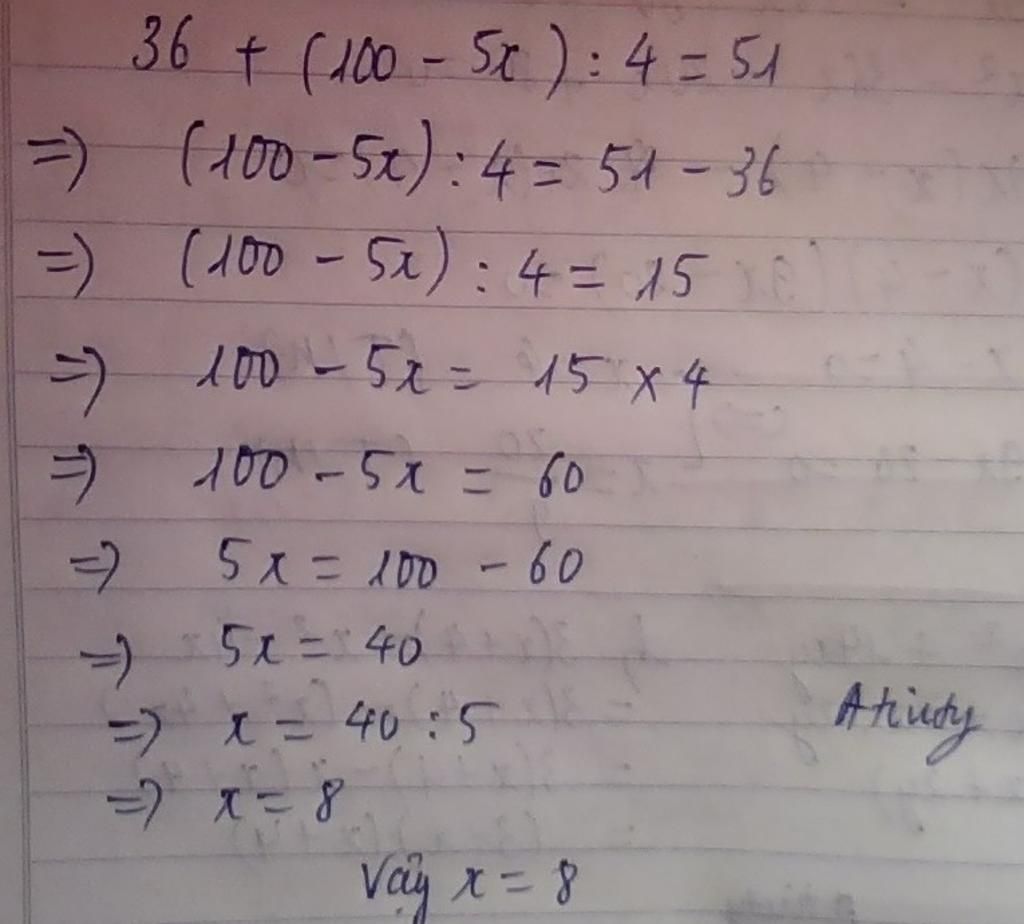 36 + (100 - 5x) : 4 = 51
=> (100 - 5x) : 4 = 51 - 36
=> (100 - 5x) : 4 = 15
=> 100 - 5x = 15 x 4
=> 100 - 5x = 60
=> 5x = 100 - 60
=> 5x = 40
=> x = 40 : 5
=> x = 8
Vậy x = 8